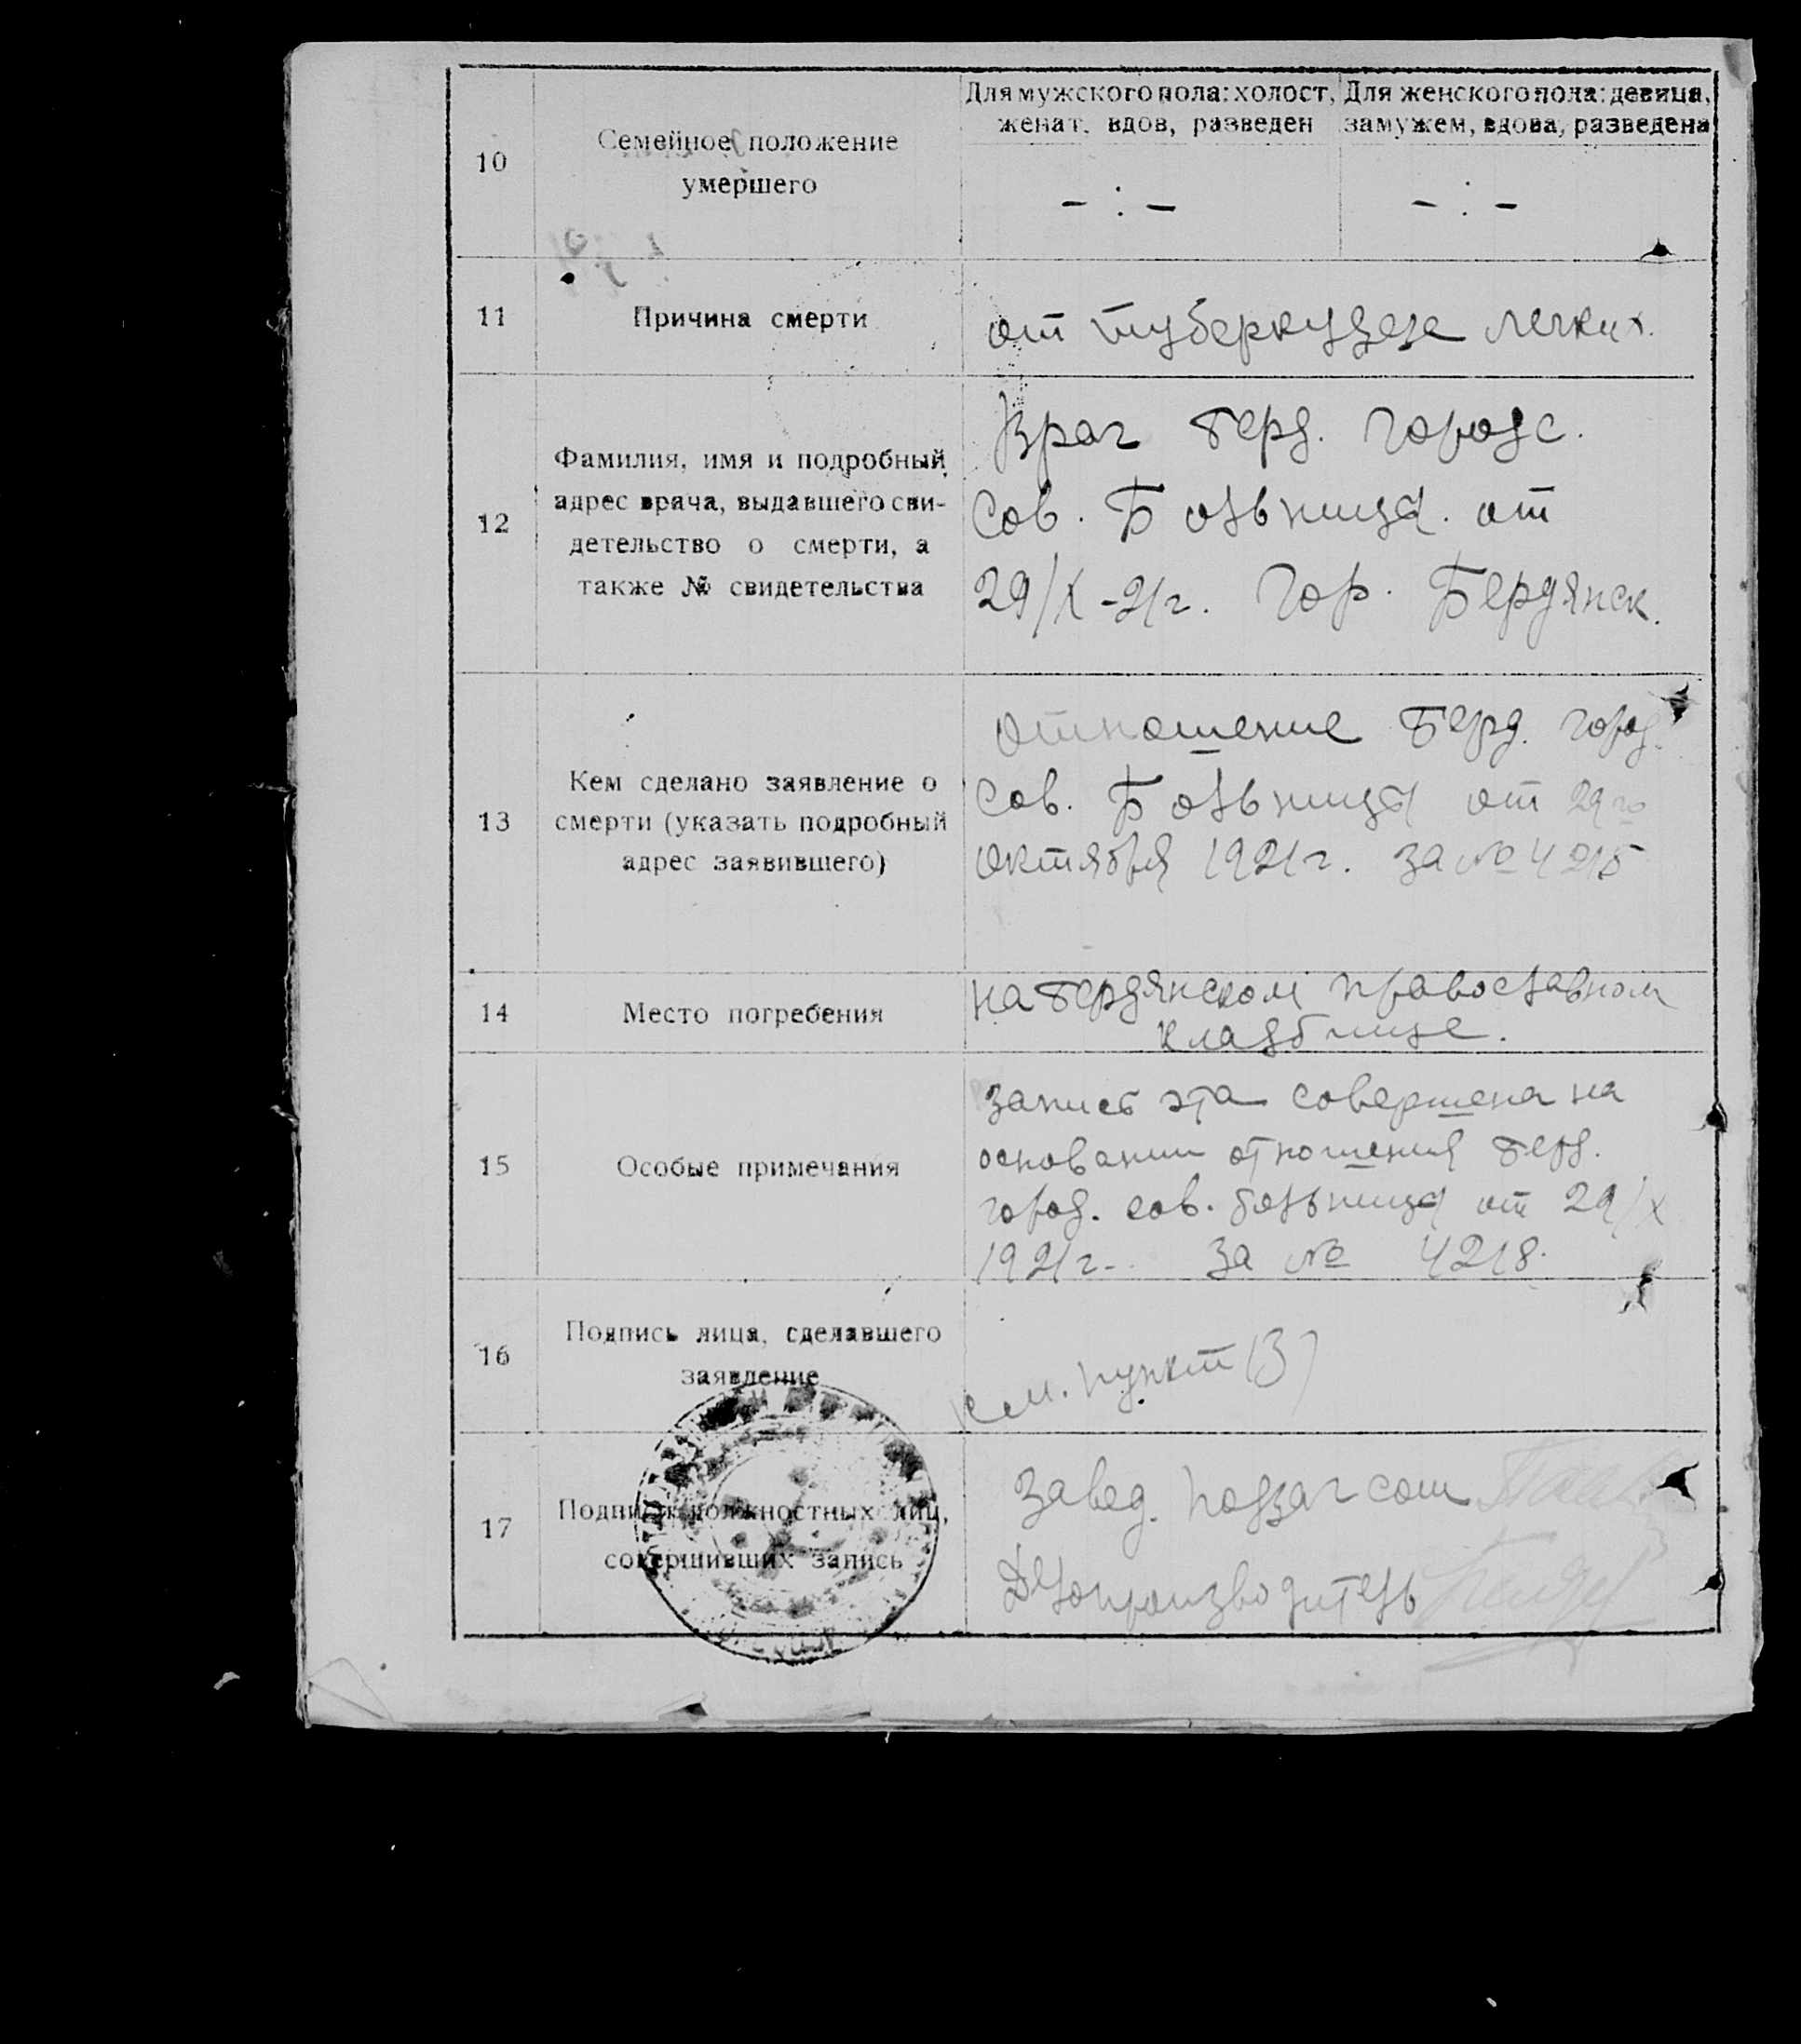 10
Семейное положение
умершего
Для мужского пола: холост,
женат, вдов, разведен
Для женского пола: девица,
замужем, вдова, разведена
- : -
- : -
11
Причина смерти
от туберкулеза легких.
12
Фамилия, имя и подробный
адрес врача, выдавшего сви-
детельство о смерти, а
также № свидетельства
Врач Берд. Городс.
Сов. Больницы. от
29/X-21г. Гор. Бердянск.
13
Кем сделано заявление о
смерти (указать подробный
адрес заявившего)
Отношение Берд. город.
Сов. Больницы от 29го
октября 1921г. за №
14
Место погребения
на Бердянском православном
кладбище.
15
Особые примечания
Запись эта совершена на
основании отношения Берд.
город. сов. больницы от 29/X
1921г. за № 4218.
16
Подпись лица, сделавшего
заявление
см. пункт 13)
17
Подписи должностных лиц,
совершивших запись
Завед. подзагсом
Делопроизводитель